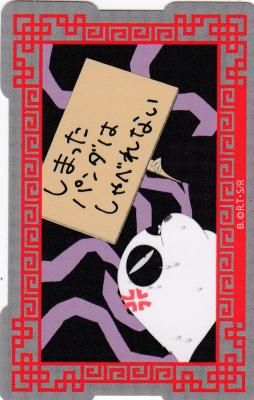 しまった
パンダは
しゃべれない
B. ©R.T・S/R